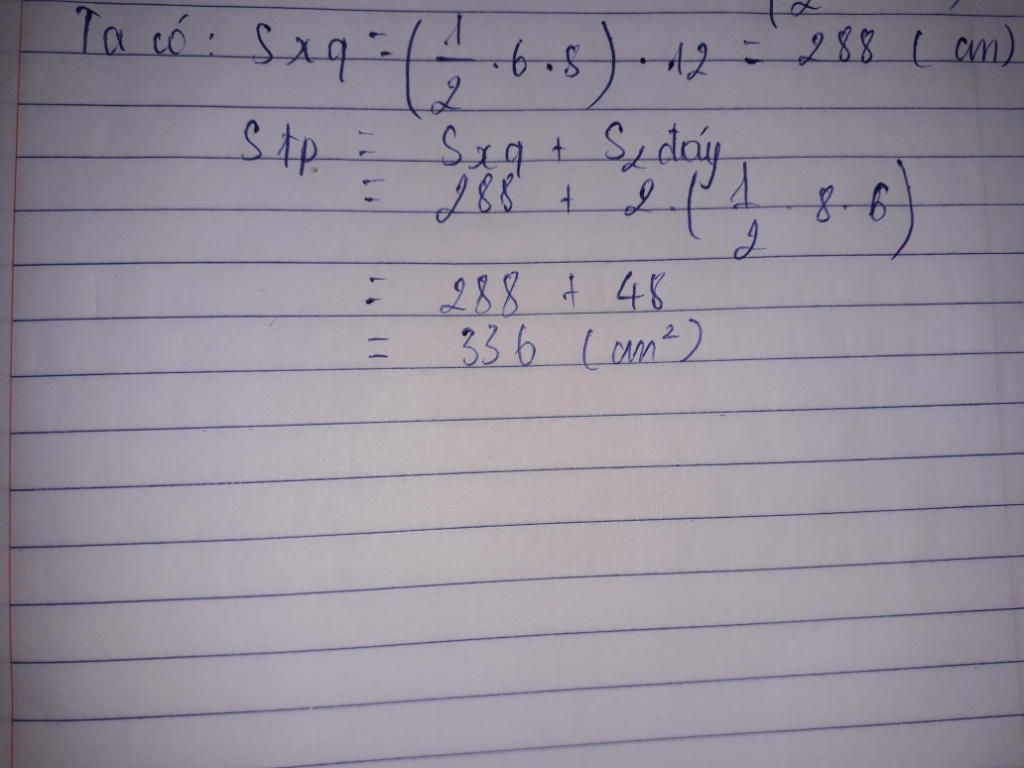 Ta có: Sxq = (1/2 . 6 . 8) . 12 = 288 (cm)
Stp = Sxq + S2 đáy
= 288 + 2 . (1/2 . 8 . 6)
= 288 + 48
= 336 (cm²)